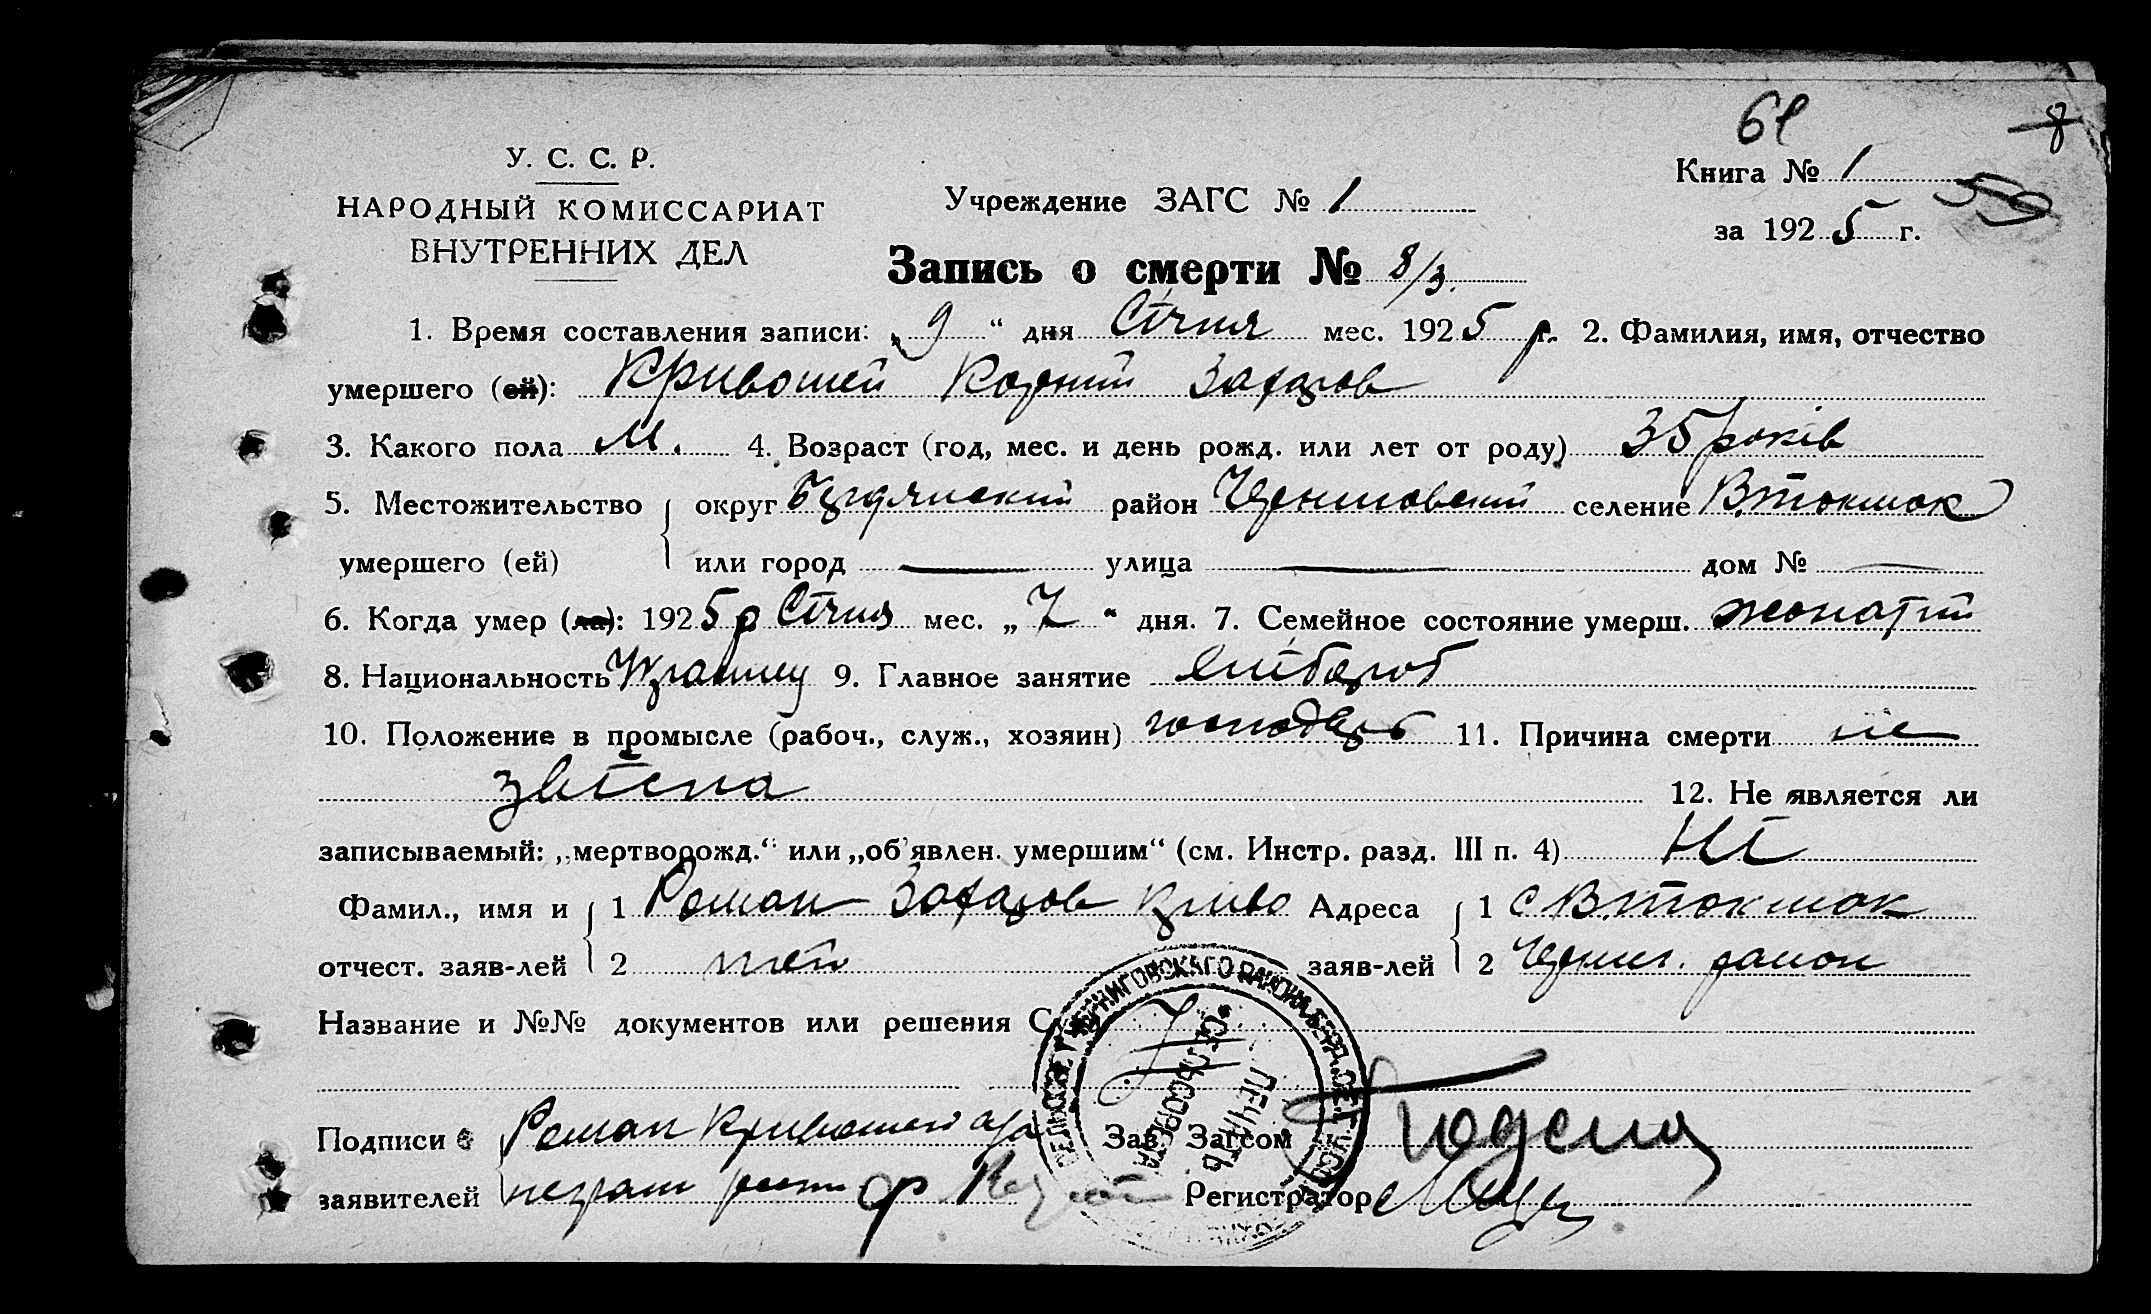 61
8
У. С. С. Р.
НАРОДНЫЙ КОМИССАРИАТ
ВНУТРЕННИХ ДЕЛ
Учреждение ЗАГС № 1
Книга № 1
59
за 1925 г.
Запись о смерти № 8/3.
1. Время составления записи: „9“ дня Січня мес. 1925 р. 2. Фамилия, имя, отчество
умершего (ей): Кривошей Корний Захаров
3. Какого пола М. 4. Возраст (год, мес. и день рожд. или лет от роду) 35 років
5. Местожительство округ Бердянский район Черниговский селение В.Токмак
умершего (ей) или город — улица — дом № —
6. Когда умер (ла): 1925 р Січня мес. „7“ дня. 7. Семейное состояние умерш. жонатий
8. Национальность Украинец 9. Главное занятие хлібороб
10. Положение в промысле (рабоч., служ., хозяин) господарь 11. Причина смерти не
звісна 12. Не является ли
записываемый: „мертворожд.“ или „об'явлен. умершим“ (см. Инстр. разд. III п. 4) Ні
Фамил., имя и 1 Роман Захаров Криво Адреса 1 с В.Токмак
отчест. заяв-лей 2 шей заяв-лей 2 Черниг. район
Название и №№ документов или решения С
Подписи Роман Кривошей а за Зав. Загсом
заявителей неграм Регистратор
ЧЕРНИГОВСКАГО РАЙОНА БЕРД. ОКР.
ПЕЧАТЬ
СЕЛЬСОВЕТА